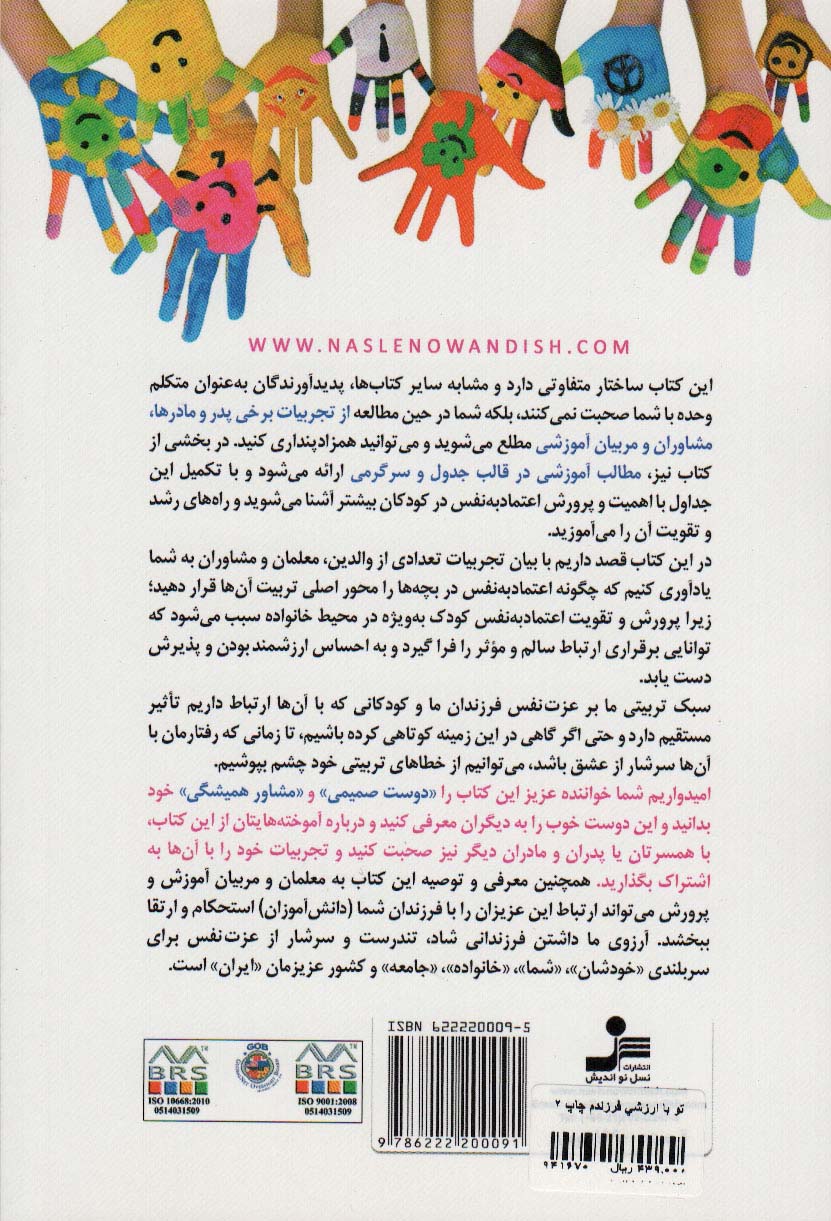 WWW.NASLENOWANDISH.COM
این کتاب ساختار متفاوتی دارد و مشابه سایر کتاب‌ها، پدیدآورندگان به‌عنوان متکلم
وحده با شما صحبت نمی‌کنند، بلکه شما در حین مطالعه از تجربیات برخی پدر و مادرها،
مشاوران و مربیان آموزشی مطلع می‌شوید و می‌توانید همزادپنداری کنید. در بخشی از
کتاب نیز، مطالب آموزشی در قالب جدول و سرگرمی ارائه می‌شود و با تکمیل این
جداول با اهمیت و پرورش اعتمادبه‌نفس در کودکان بیشتر آشنا می‌شوید و راه‌های رشد
و تقویت آن را می‌آموزید.
در این کتاب قصد داریم با بیان تجربیات تعدادی از والدین، معلمان و مشاوران به شما
یادآوری کنیم که چگونه اعتمادبه‌نفس در بچه‌ها را محور اصلی تربیت آن‌ها قرار دهید؛
زیرا پرورش و تقویت اعتمادبه‌نفس کودک به‌ویژه در محیط خانواده سبب می‌شود که
توانایی برقراری ارتباط سالم و مؤثر را فرا گیرد و به احساس ارزشمند بودن و پذیرش
دست یابد.
سبک تربیتی ما بر عزت‌نفس فرزندان ما و کودکانی که با آن‌ها ارتباط داریم تأثیر
مستقیم دارد و حتی اگر گاهی در این زمینه کوتاهی کرده باشیم، تا زمانی که رفتارمان با
آن‌ها سرشار از عشق باشد، می‌توانیم از خطاهای تربیتی خود چشم بپوشیم.
امیدواریم شما خواننده عزیز این کتاب را «دوست صمیمی» و «مشاور همیشگی» خود
بدانید و این دوست خوب را به دیگران معرفی کنید و درباره آموخته‌هایتان از این کتاب،
با همسرتان یا پدران و مادران دیگر نیز صحبت کنید و تجربیات خود را با آن‌ها به
اشتراک بگذارید. همچنین معرفی و توصیه این کتاب به معلمان و مربیان آموزش و
پرورش می‌تواند ارتباط این عزیزان را با فرزندان شما (دانش‌آموزان) استحکام و ارتقا
ببخشد. آرزوی ما داشتن فرزندانی شاد، تندرست و سرشار از عزت‌نفس برای
سربلندی «خودشان»، «شما»، «خانواده»، «جامعه» و کشور عزیزمان «ایران» است.
ISBN 622220009-5
9 786222 200091
انتشارات
نسل نو اندیش
تو با ارزشی فرزندم چاپ ۲
۴۳۹,۰۰۰ ریال ۹۴۱۶۷۰
BRS TM
ISO 10668:2010
0514031509
GOB
BRS TM
ISO 9001:2008
0514031509